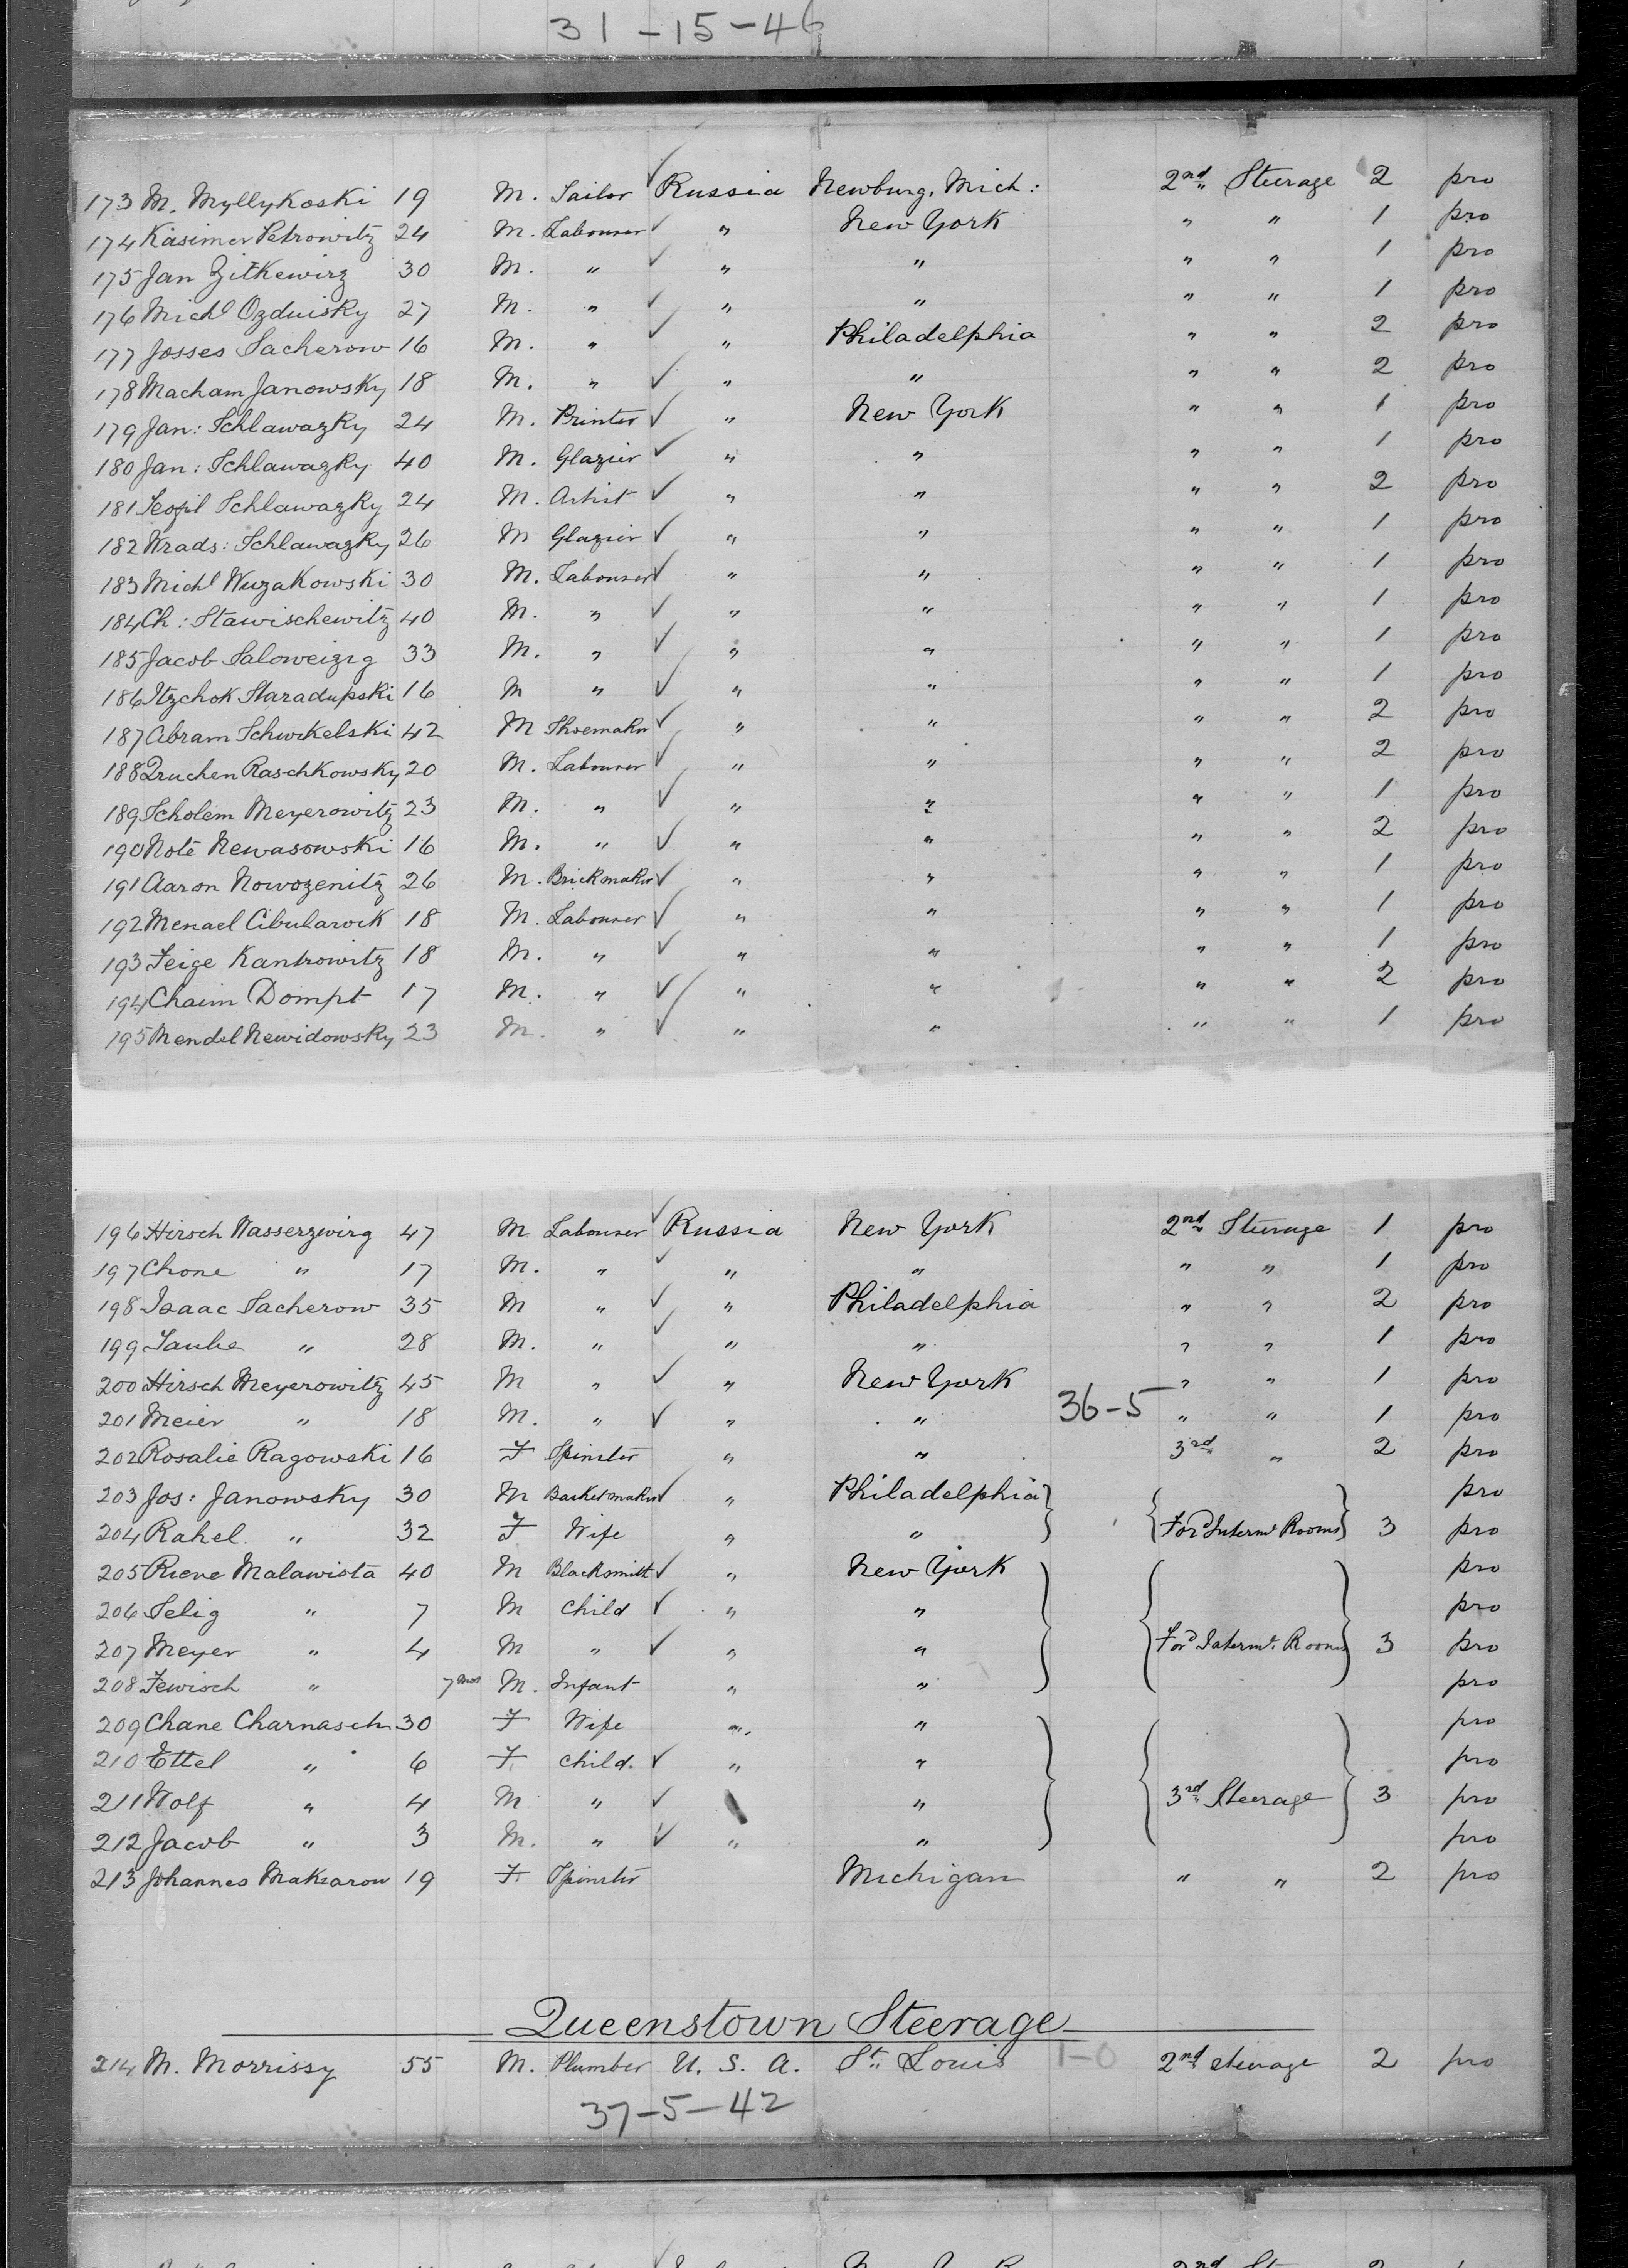 31-15-46
173 M. Myllykoski 19 M. Sailor Russia Newburg, Mich: 2nd Steerage 2 pro
174 Kasimer Petrowitz 24 M. Labourer " New York " " 1 pro
175 Jan Zitkewirz 30 M. " " " " " 1 pro
176 Michl Ozduisky 27 M. " " " " " 1 pro
177 Josses Sacherow 16 M. " " Philadelphia " " 2 pro
178 Macham Janowsky 18 M. " " " " " 2 pro
179 Jan: Schlawazky 24 M. Printer " New York " " 1 pro
180 Jan: Schlawazky 40 M. Glazier " " " " 1 pro
181 Schlawazky 24 M. Artist " " " " 2 pro
182 Krads: Schlawazky 26 M Glazier " " " " 1 pro
183 Michl Wuzakowski 30 M. Labourer " " " " 1 pro
184 Ch: Stawischewitz 40 M. " " " " " 1 pro
185 Jacob Saloweizig 33 M. " " " " " 1 pro
186 Itzchok Staradupski 16 M " " " " " 1 pro
187 Abram Schwkelski 42 M Shoemaker " " " " 2 pro
188 Raschkowsky 20 M. Labourer " " " " 2 pro
189 Scholem Meyerowitz 23 M. " " " " " 1 pro
190 Note Newasowski 16 M. " " " " " 2 pro
191 Aaron Nowozenitz 26 M. Brickmaker " " " " 1 pro
192 Menael Cibularock 18 M. Labourer " " " " 1 pro
193 Feige Kantrowitz 18 M. " " " " " 1 pro
194 Chaim Dompt 17 M. " " " " " 2 pro
195 Mendel Newidowsky 23 M. " " " " " 1 pro
196 Hirsch Wasserzwirg 47 M Labourer Russia New York 2nd Steerage 1 pro
197 Chone " 17 M. " " " " " 1 pro
198 Isaac Sacherow 35 M " " Philadelphia " " 2 pro
199 Taube " 28 M. " " " " " 1 pro
200 Hirsch Meyerowitz 45 M " " New York " " 1 pro
201 Meier " 18 M. " " " 36-5 " " 1 pro
202 Rosalie Ragowski 16 F Spinster " " 3rd " 2 pro
203 Jos: Janowsky 30 M Basketmaker " Philadelphia pro
204 Rahel " 32 F Wife " " Ford Intermt Rooms 3 pro
205 Rieve Malawista 40 M Blacksmith " New York pro
206 Selig " 7 M Child " " pro
207 Meyer " 4 M " " " Ford Intermt. Rooms 3 pro
208 Fewisch " 7 mos M. Infant " " pro
209 Chane Charnasch 30 F Wife " " pro
210 Ettel " 6 F. Child. " " pro
211 Wolf " 4 M " " 3rd Steerage 3 pro
212 Jacob " 3 M. " " " pro
213 Johannes Maksarow 19 F. Spinster Michigan " " 2 pro
Queenstown Steerage
214 M. Morrissy 55 M. Plumber U. S. A. St. Louis 1-0 2nd steerage 2 pro
37-5-42